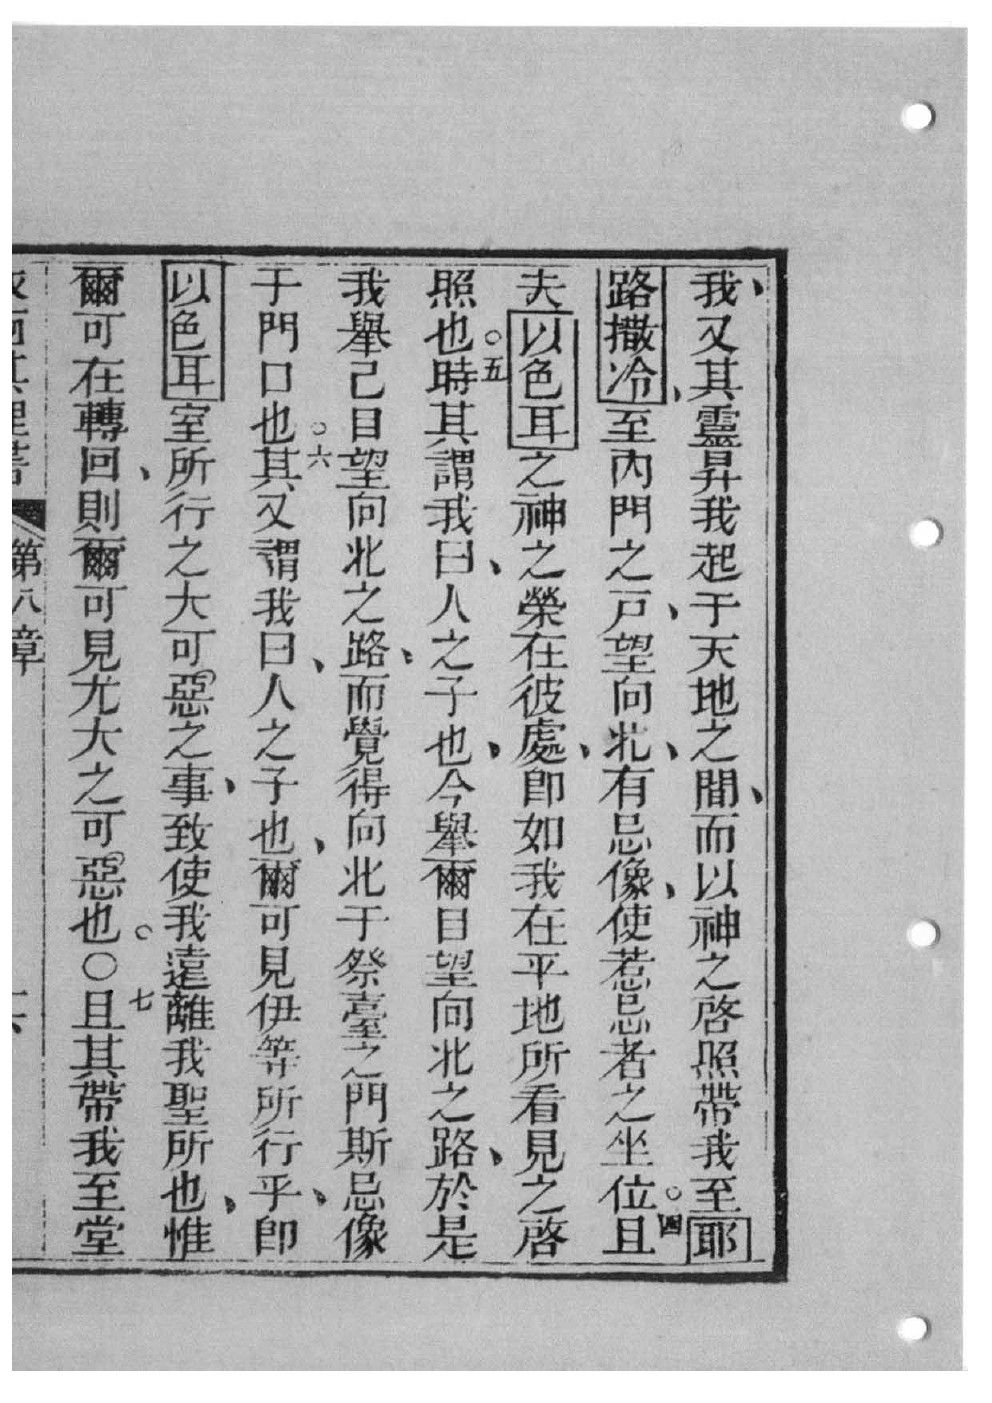 我、又其靈昇我起于天地之間、而以神之啓照帶我至耶
路撒冷、至內門之戸、望向北、有忌像、使惹忌者之坐位。四且
夫以色耳之神之榮在彼處、卽如我在平地所看見之啓
照也。五時其謂我曰、人之子也、今舉爾目望向北之路、於是
我舉己目望向北之路、而覺得向北于祭臺之門斯忌像
于門口也。六其又謂我曰、人之子也、爾可見伊等所行乎、卽
以色耳室所行之大可惡之事、致使我遠離我聖所也、惟
爾可在轉回、則爾可見尤大之可惡也。〇七且其帶我至堂
依西其理書 第八章